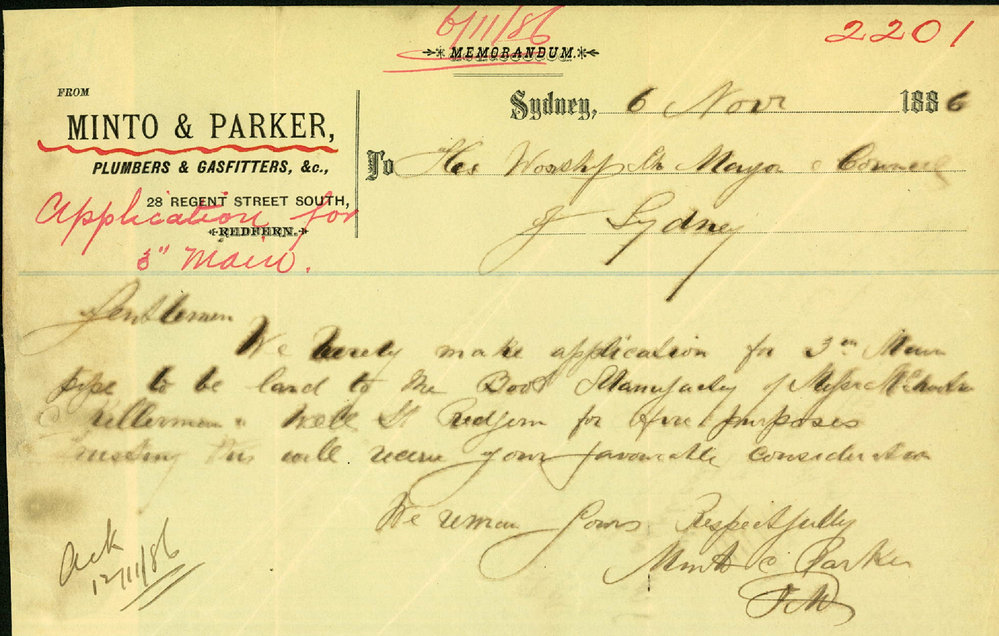 6/11/86
2201
MEMORANDUM.
FROM
MINTO & PARKER,
PLUMBERS & GASFITTERS, &c.,
28 REGENT STREET SOUTH,
REDFERN.
Application for
3" Main.
Sydney, 6 Novr 1886
To His Worship the Mayor & Council
of Sydney
Gentlemen
We herely make application for 3in Main
pipe to be laid to the Boot Manufacty of Messrs
Wells St Redfern for fire purposes
trusting this will receive your favourable consideration
We reman Yours Respectfully
Minto & Parker
Ack
12/11/86